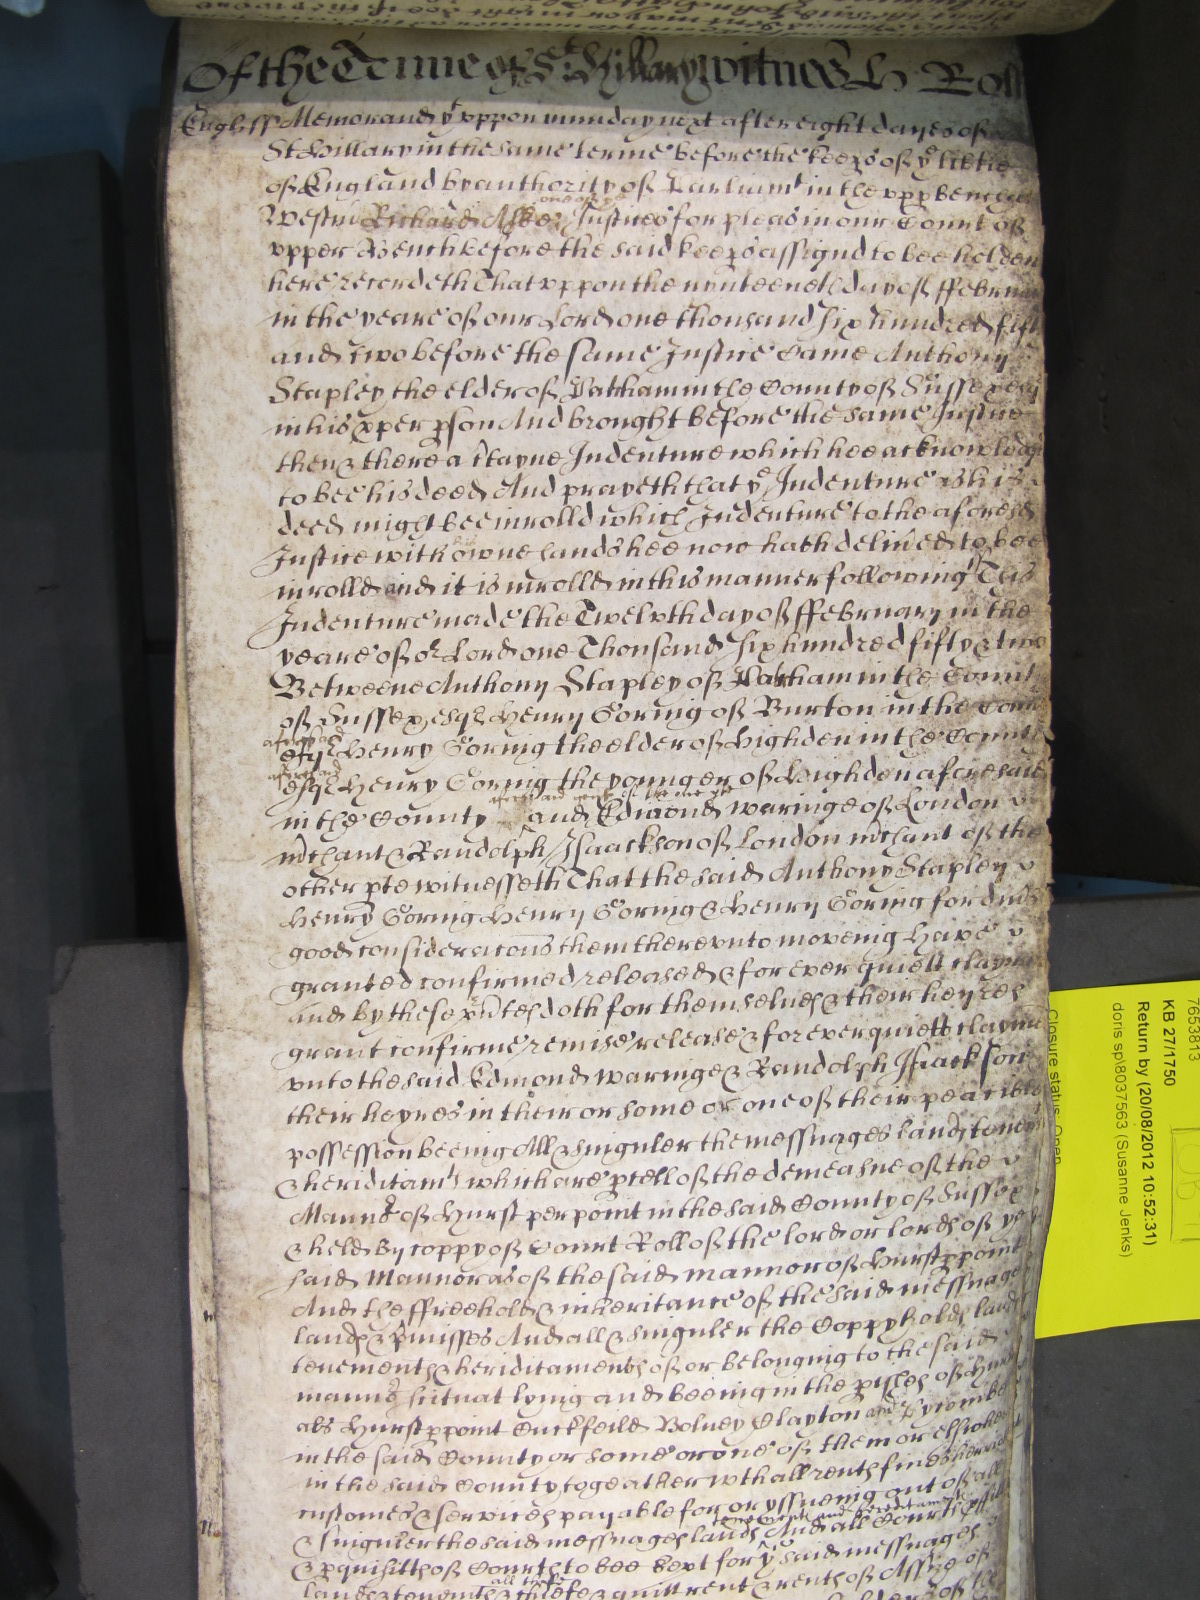 Of the Terme of St. Hillary witnes H Roll
English Memorand yt uppon munday next after eight dayes of
St Hillary in the same terme before the keeprs of ye libtie
of England by authority of Parliamt in the uppr bench att
Westm Richard Aske Justices for pleas in our Court of
upper Bench before the said keeprs assignd to bee holden
here recordeth That uppon the nynteeneth day of ffebruary
in the yeare of our Lord one thousand six hundred fifty
and two before the same Justice Came Anthony
Stapley the elder of Patcham in the County of Sussex esq
in his pper pson And brought before the same Justice
then & there a ctayne Indenture which hee acknowledg
to bee his deed And prayeth that ye Indenture as his
deed might bee inrolld which Indenture to the aforesd
Justice with his owne hands hee now hath delived to bee
inrolld and it is inrolld in this manner following This
Indenture made the Twelvth day of ffebruary in the
yeare of or Lord one Thousand six hundred fifty & two
Betweene Anthony Stapley of Patcham in the County
of Sussex esqr Henry Goring of Burton in the County
aforesaid
esqr Henry Goring the elder of Highden in the County
aforesaid
esqr Henry Goring the younger of Highden aforesaid
in the County and Edmond Waringe of London
mchant & Randolph Isaackson of London mchant of the
other pte witnesseth That the said Anthony Stapley
Henry Goring Henry Goring & Henry Goring for divs
good consideracons them thereunto moveing Have
granted confirmed released & for ever quiett claymd
and by these psntes doth for themselves & their heyres
grant confirme remise release & for ever quiett clayme
unto the said Edmond Waringe & Randolph Isaackson
their heyres in their or some or one of their peacible
possession beeing All & singuler the messuages lands tenemts
& heriditamts which are pcell of the demeasne of the
Mannor of Hurst perpoint in the said County of Sussex
& held by coppy of Court Roll of the lord or lords of ye
said Mannor as of the said mannor of Hurstppoint
And the ffreehold & inheritance of the said messuages
lands & pmisses And all & singuler the Coppyhold lands
tenements & heriditaments of or belonging to the said
mannor scituat lying and beeing in the pishes of Hurst
als Hurstppoint Cuckfeild Bolney Clayton and Twyneham
in the said County or some or one of them or elswhere
in the said County togeather wth all rents fines heriotts
customes & services payable for or yssueing out of all
tenements and hereditaments
& singuler the said messuages lands And all Courts pffitts
& pquisitts of Courts to bee kept for ye said messuages
all those
lands & tenemts & cheife & quitt rent & rents of Assize of